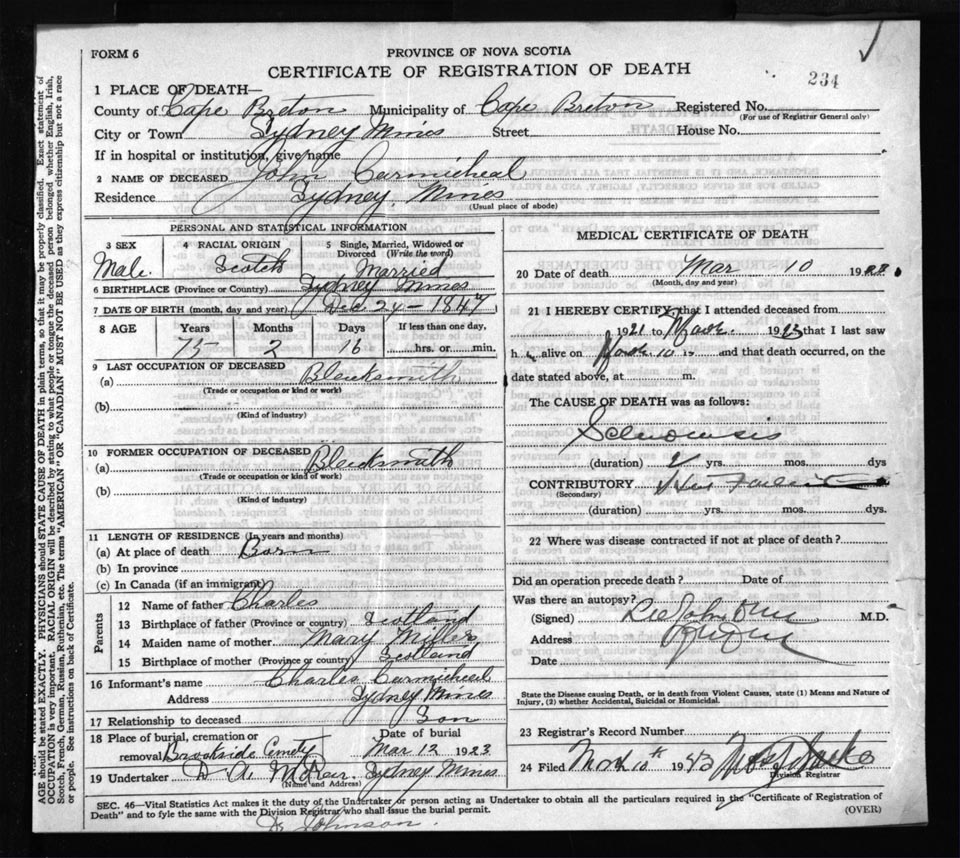 FORM 6
PROVINCE OF NOVA SCOTIA
CERTIFICATE OF REGISTRATION OF DEATH
234
1 PLACE OF DEATH—
County of Cape Breton Municipality of Cape Breton Registered No.
(For use of Registrar General only)
City or Town Sydney Mines Street House No.
If in hospital or institution, give name
2 NAME OF DECEASED John Carmicheal
Residence Sydney Mines
(Usual place of abode)
PERSONAL AND STATISTICAL INFORMATION
3 SEX 4 RACIAL ORIGIN 5 Single, Married, Widowed or Divorced (Write the word)
Male Scotch Married
6 BIRTHPLACE (Province or Country) Sydney Mines
7 DATE OF BIRTH (month, day and year) Dec 24 - 1847
8 AGE Years Months Days If less than one day,
75 2 16 hrs. or min.
9 LAST OCCUPATION OF DECEASED
(a) Blacksmith
(Trade or occupation or kind or work)
(b)
(Kind of industry)
10 FORMER OCCUPATION OF DECEASED
(a) Blacksmith
(Trade or occupation or kind of work)
(b)
(Kind of industry)
11 LENGTH OF RESIDENCE (In Years and Months)
(a) At place of death Born
(b) In province
(c) In Canada (if an immigrant)
Parents
12 Name of father Charles
13 Birthplace of father (Province or country) Scotland
14 Maiden name of mother Mary Miller
15 Birthplace of mother (Province or country) Scotland
16 Informant's name Charles Carmicheal
Address Sydney Mines
17 Relationship to deceased Son
18 Place of burial, cremation or removal Brookside Cemety
Date of burial Mar 12 1923
19 Undertaker D A Sydney Mines
(Name and Address)
MEDICAL CERTIFICATE OF DEATH
20 Date of death Mar 10 19
(Month, day and year)
21 I HEREBY CERTIFY, that I attended deceased from
1921 to March 1923 that I last saw
h alive on March 10 and that death occurred, on the
date stated above, at m.
The CAUSE OF DEATH was as follows:
(duration) 2 yrs. mos. dys
CONTRIBUTORY
(Secondary)
(duration) yrs. mos. dys.
22 Where was disease contracted if not at place of death?
Did an operation precede death? Date of
Was there an autopsy?
(Signed) M.D.
Address
Date
State the Disease causing Death, or in death from Violent Causes, state (1) Means and Nature of
Injury, (2) whether Accidental, Suicidal or Homicidal.
23 Registrar's Record Number
24 Filed March 10th 1923
Division Registrar
SEC. 46—Vital Statistics Act makes it the duty of the Undertaker or person acting as Undertaker to obtain all the particulars required in the "Certificate of Registration of
Death" and to fyle the same with the Division Registrar who shall issue the burial permit.
(OVER)
Dr Johnson.
AGE should be stated EXACTLY. PHYSICIANS should STATE CAUSE OF DEATH in plain terms, so that it may be properly classified. Exact statement of
OCCUPATION is very important. RACIAL ORIGIN will be described by stating to what people or tongue the deceased person belonged whether English, Irish,
Scotch, French, German, Russian, Ruthenian, etc. The terms "AMERICAN" OR "CANADIAN" MUST NOT BE USED as they express citizenship but not a race
or people. See instructions on back of Certificate.